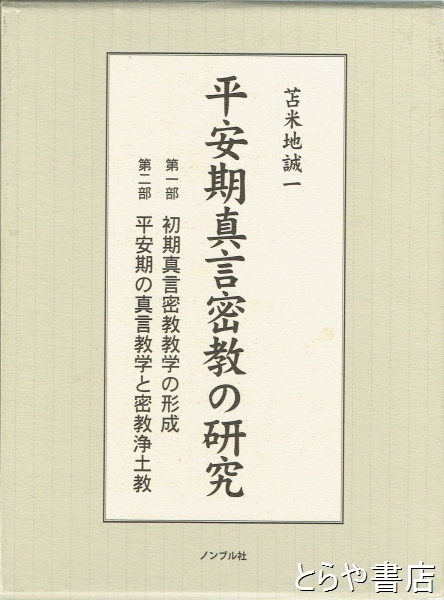 苫米地誠一
平安期真言密教の研究
第一部 初期真言密教教学の形成
第二部 平安期の真言教学と密教浄土教
ノンブル社
とらや書店